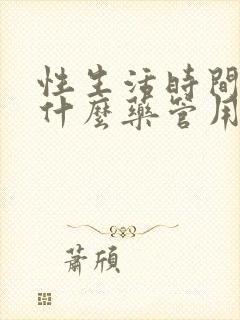 性生活時間
什麼藥管用
蕭頎